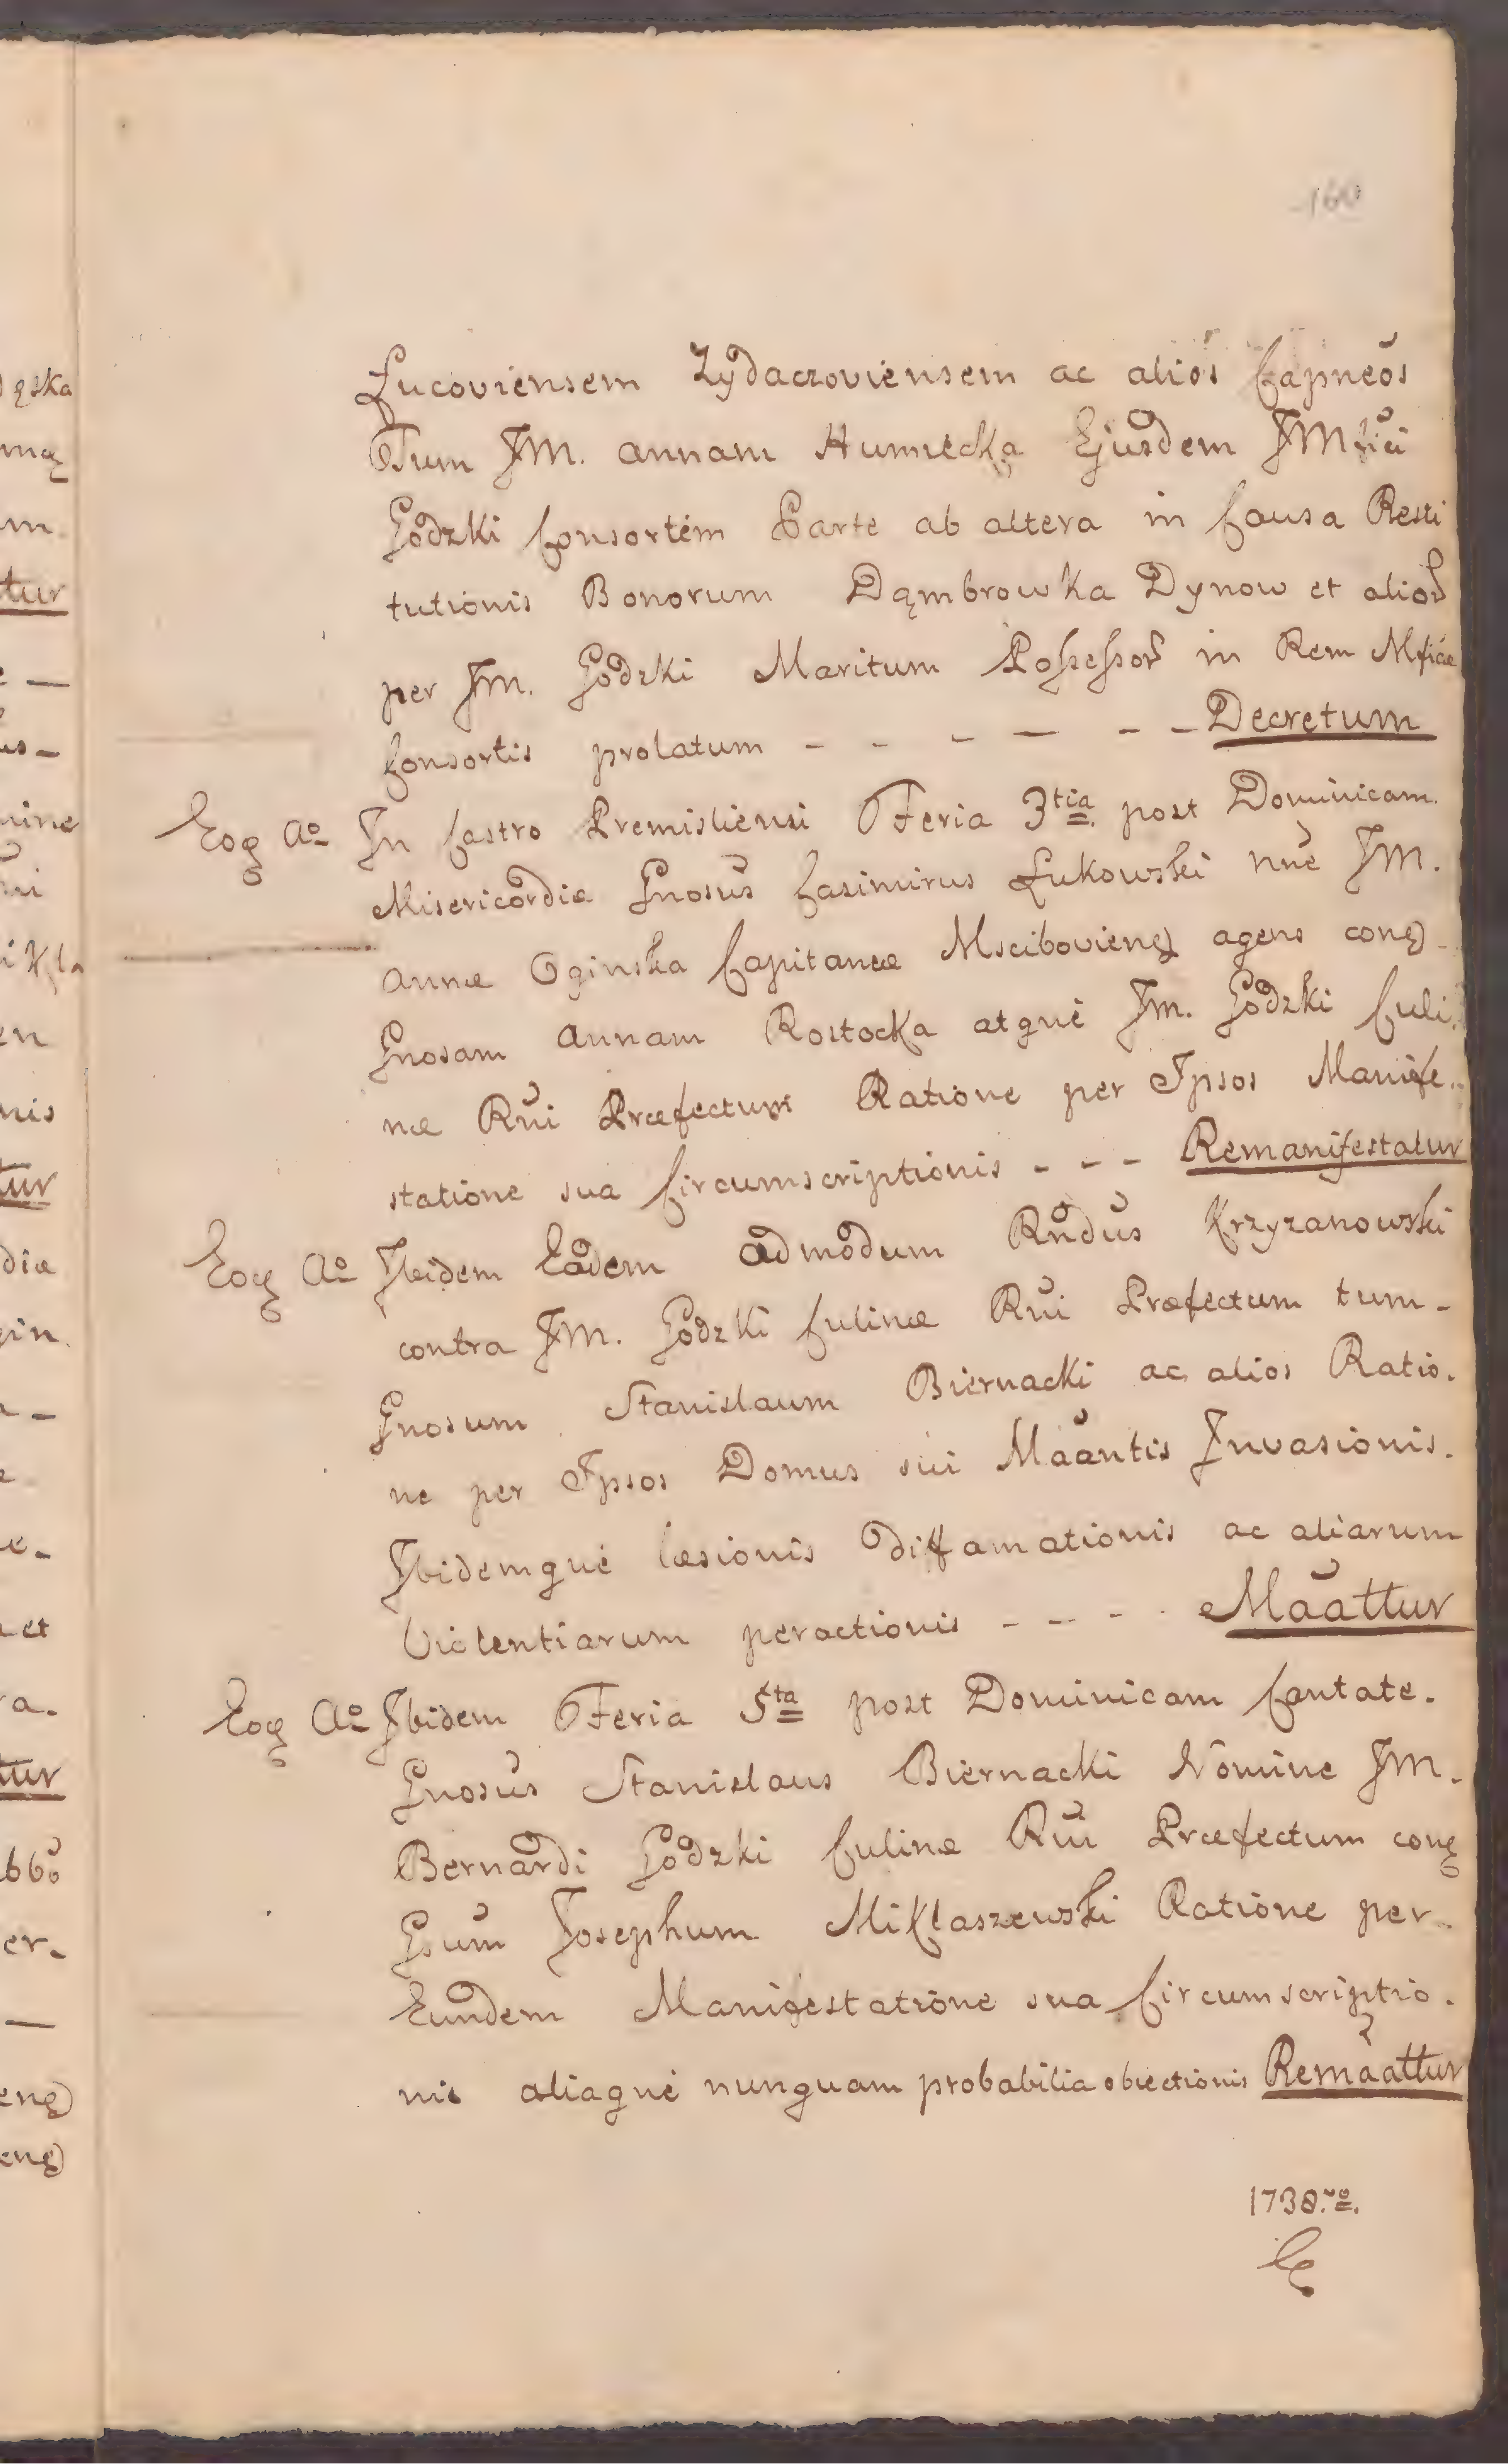 160
Lucoviensem Zydaczoviensem ac alios Capneos
Tum JM. Annam Humiecka Ejusdem JMfici
Godzki Consortem Parte ab altera in Causa Resti
tutionis Bonorum Dąmbrowka Dynow et alior
per JM. Godzki Maritum Possessor in Rem Mficae
Consortis prolatum - - - - - - Decretum
Eoq Ao In Castro Premisliensi Feria 3tia post Dominicam
Misericordiae Gnosus Casimirus Lukowski nne JM.
Annae Oginska Capitaneae Mscibovienq agens conq
Gnosam Annam Rostocka atque JM. Godzki Culi
nae Rni Praefectum Ratione per Ipsos Manife-
statione sua Circumscriptionis - - - Remanifestatur
Eoq Ao Ibidem Eadem admodum Rndus Krzyzanowski
contra JM. Godzki Culinae Rni Praefectum tum-
Gnosum Stanislaum Biernacki ac alios Ratio-
ne per Ipsos Domus sui Maantis Invasionis.
Ibidemque laesionis diffamationis ac aliarum
Violentiarum peractionis - - - - Maattur
Eoq Ao Ibidem Feria 5ta post Dominicam Cantate.
Gnosus Stanislaus Biernacki Nomine JM.
Bernardi Godzki Culinae Rni Praefectum conq
Gsum Josephum Miklaszewski Ratione per-
Eundem Manifestatione sua Circumscriptio-
nis aliaque nunquam probabilia obiectionis Remaattur
1738.vo.